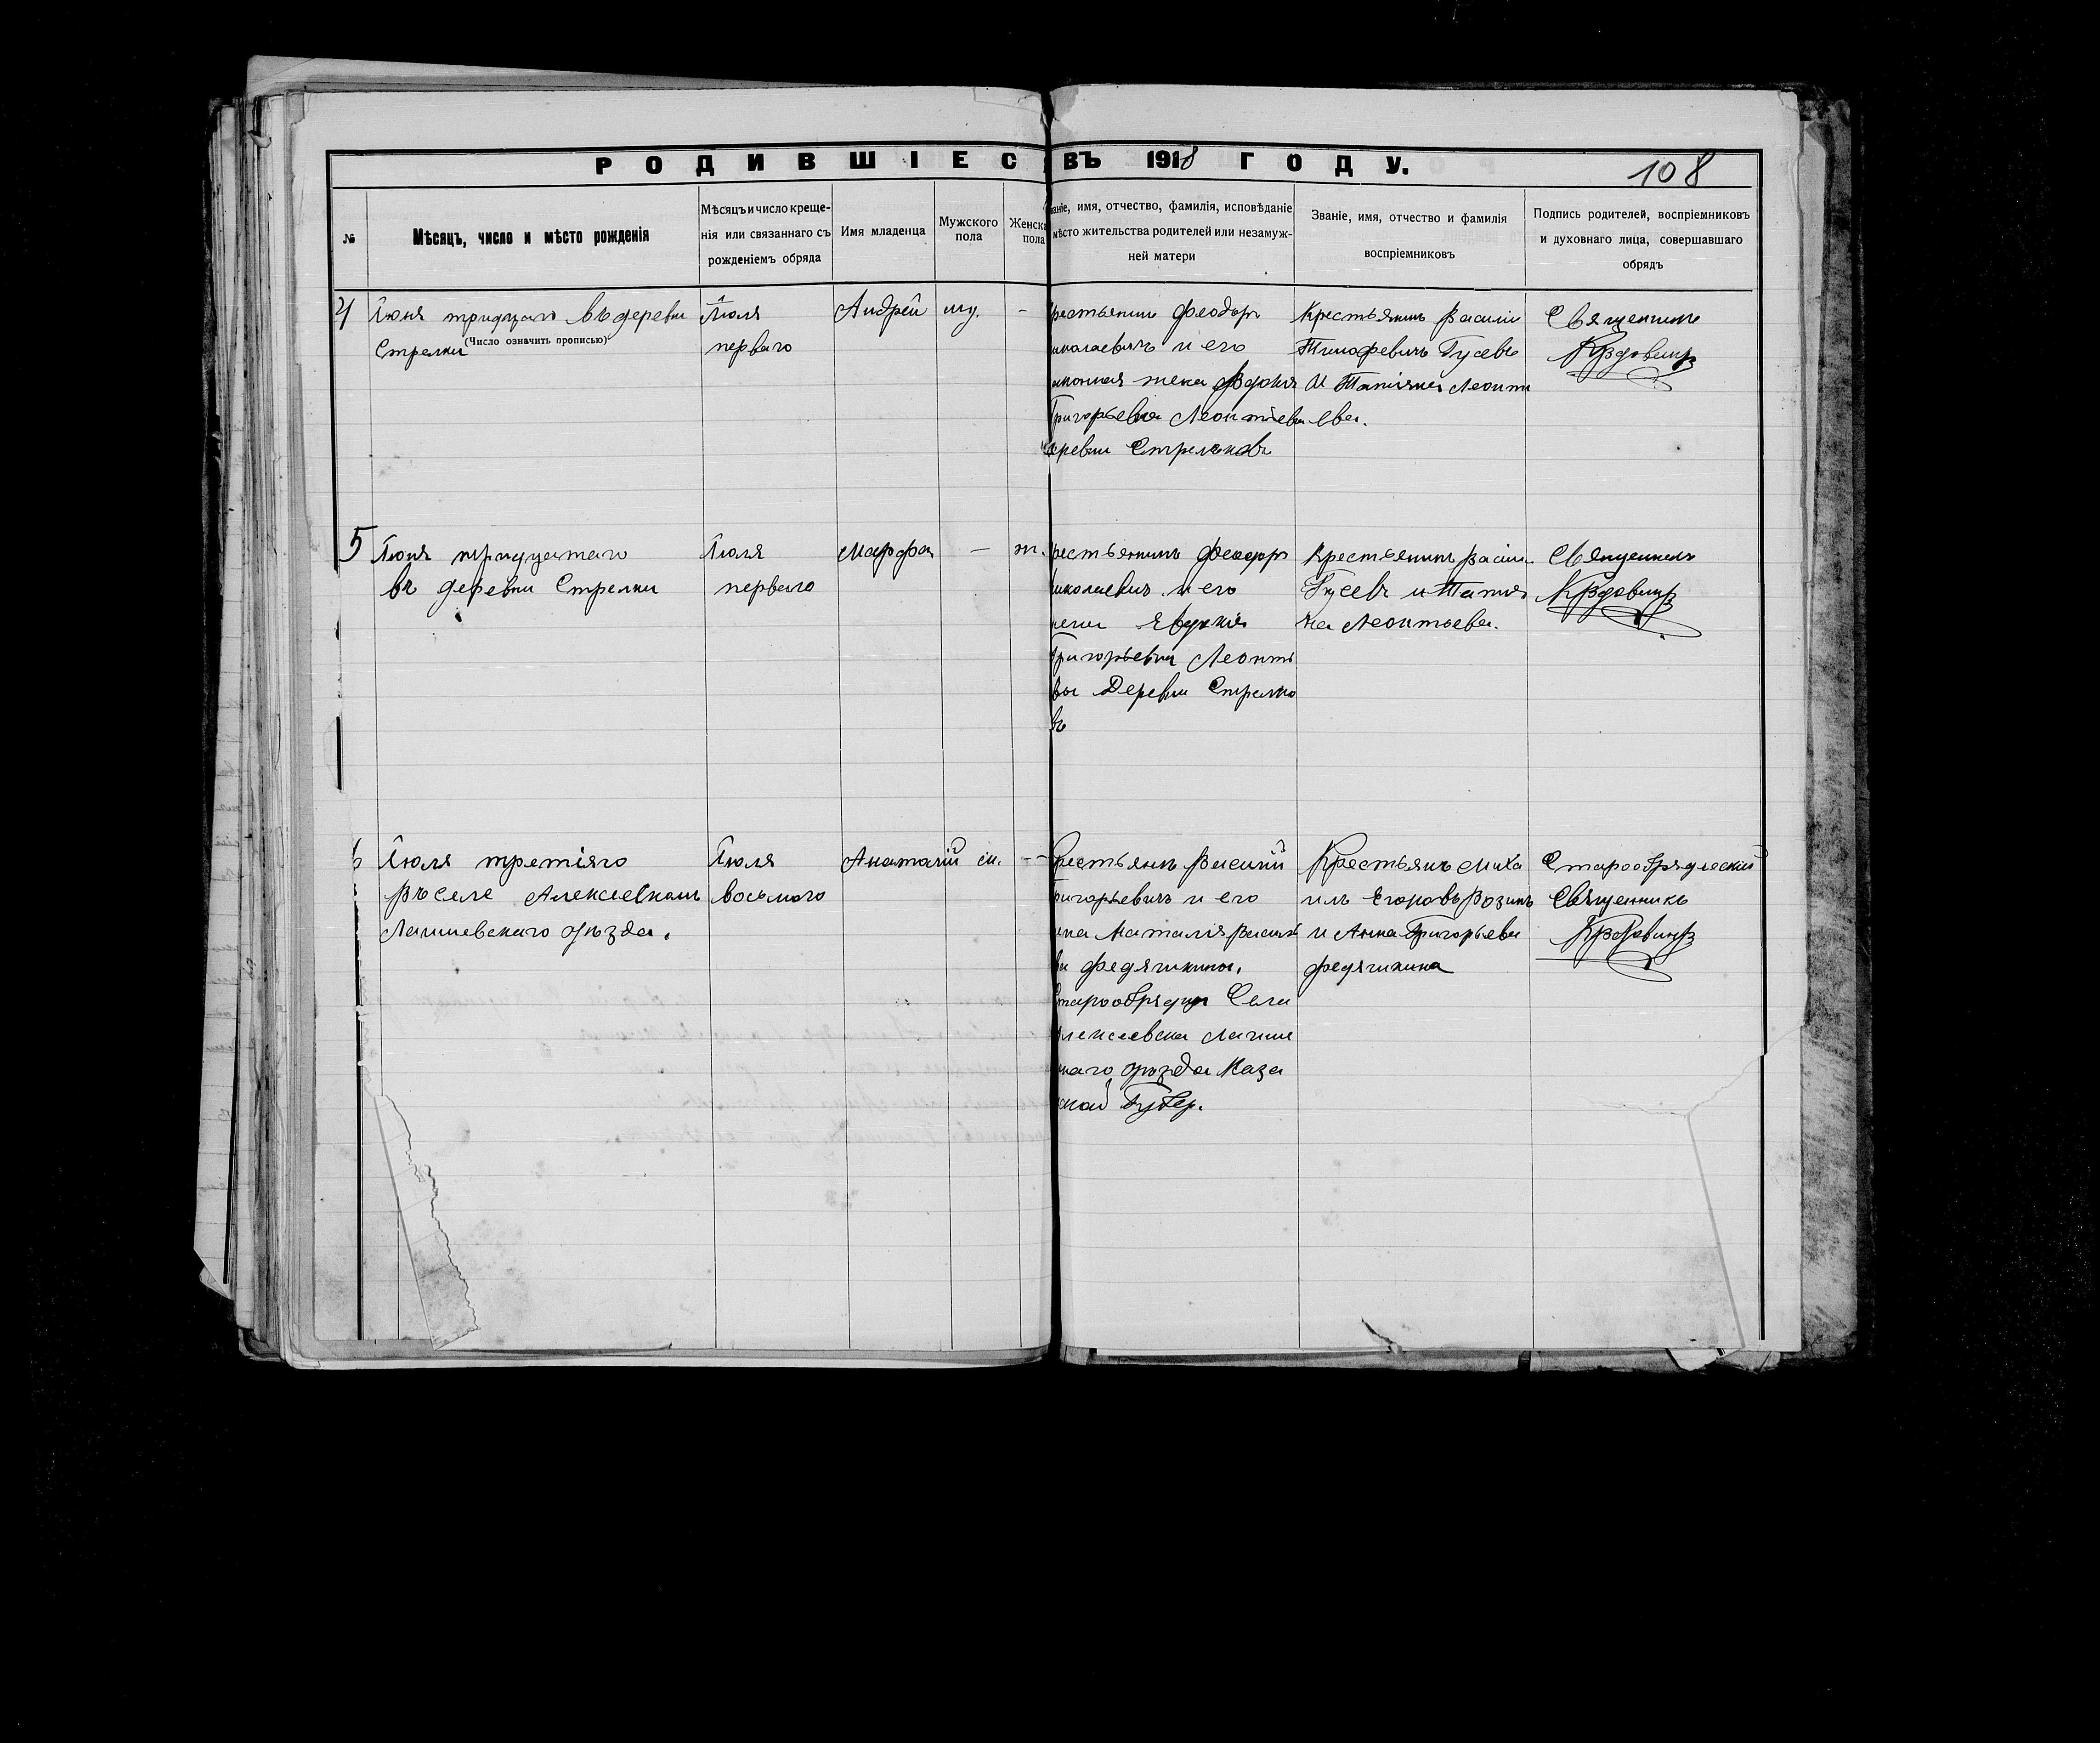 РОДИВШІЕС ВЪ 1918 ГОДУ.
108
№
Мѣсяцъ, число и мѣсто рожденія
Мѣсяцъ и число креще-
нія или связаннаго съ
рожденіемъ обряда
Имя младенца
Мужского
пола
Женска
пола
ваніе, имя, отчество, фамилія, исповѣданіе
мѣсто жительства родителей или незамуж-
ней матери
Званіе, имя, отчество и фамилія
воспріемниковъ
Подпись родителей, воспріемниковъ
и духовнаго лица, совершавшаго
обрядъ
4
Іюня въ деревни
(Число означить прописью)
Стрелки
Іюля
перваго
Андрей
му.
-
рестьянин Феодоръ
николаевичъ и его
законная жена
Григорьевна Леонтіевы
деревни Стрелковъ
Крестьянинъ Василій
Тимофевичъ Гусевъ
и Татіяна Леонти
ева.
Священникъ
5
Іюня тридцатаго
въ деревни Стрелки
Іюля
перваго
Марфа
-
ж.
рестьянинъ Феодоръ
николаевич и его
жена Явдокія
Григорьевна Леонть
вы Деревни Стрелко
въ
Крестьянинъ Васили
Гусевъ и Татия
на Леонтьева.
Священникъ
6
Іюля третіяго
Въ селе Алексеевкомъ
Лаишевскаго уѣзда.
Іюля
восьмого
Анатолій
м.
--
рестьянъ Василий
Григорьевичъ и его
жена Наталія Василь
вн Федячкины.
Старообрядцы Села
Алексеевска Лаише
скаго уѣзда Каза
ской Губер.
Крестьянъ Миха
илъ Егоровъ Возинъ
и Анна Григорьева
Федячкина
Старообрядческій
Священникъ